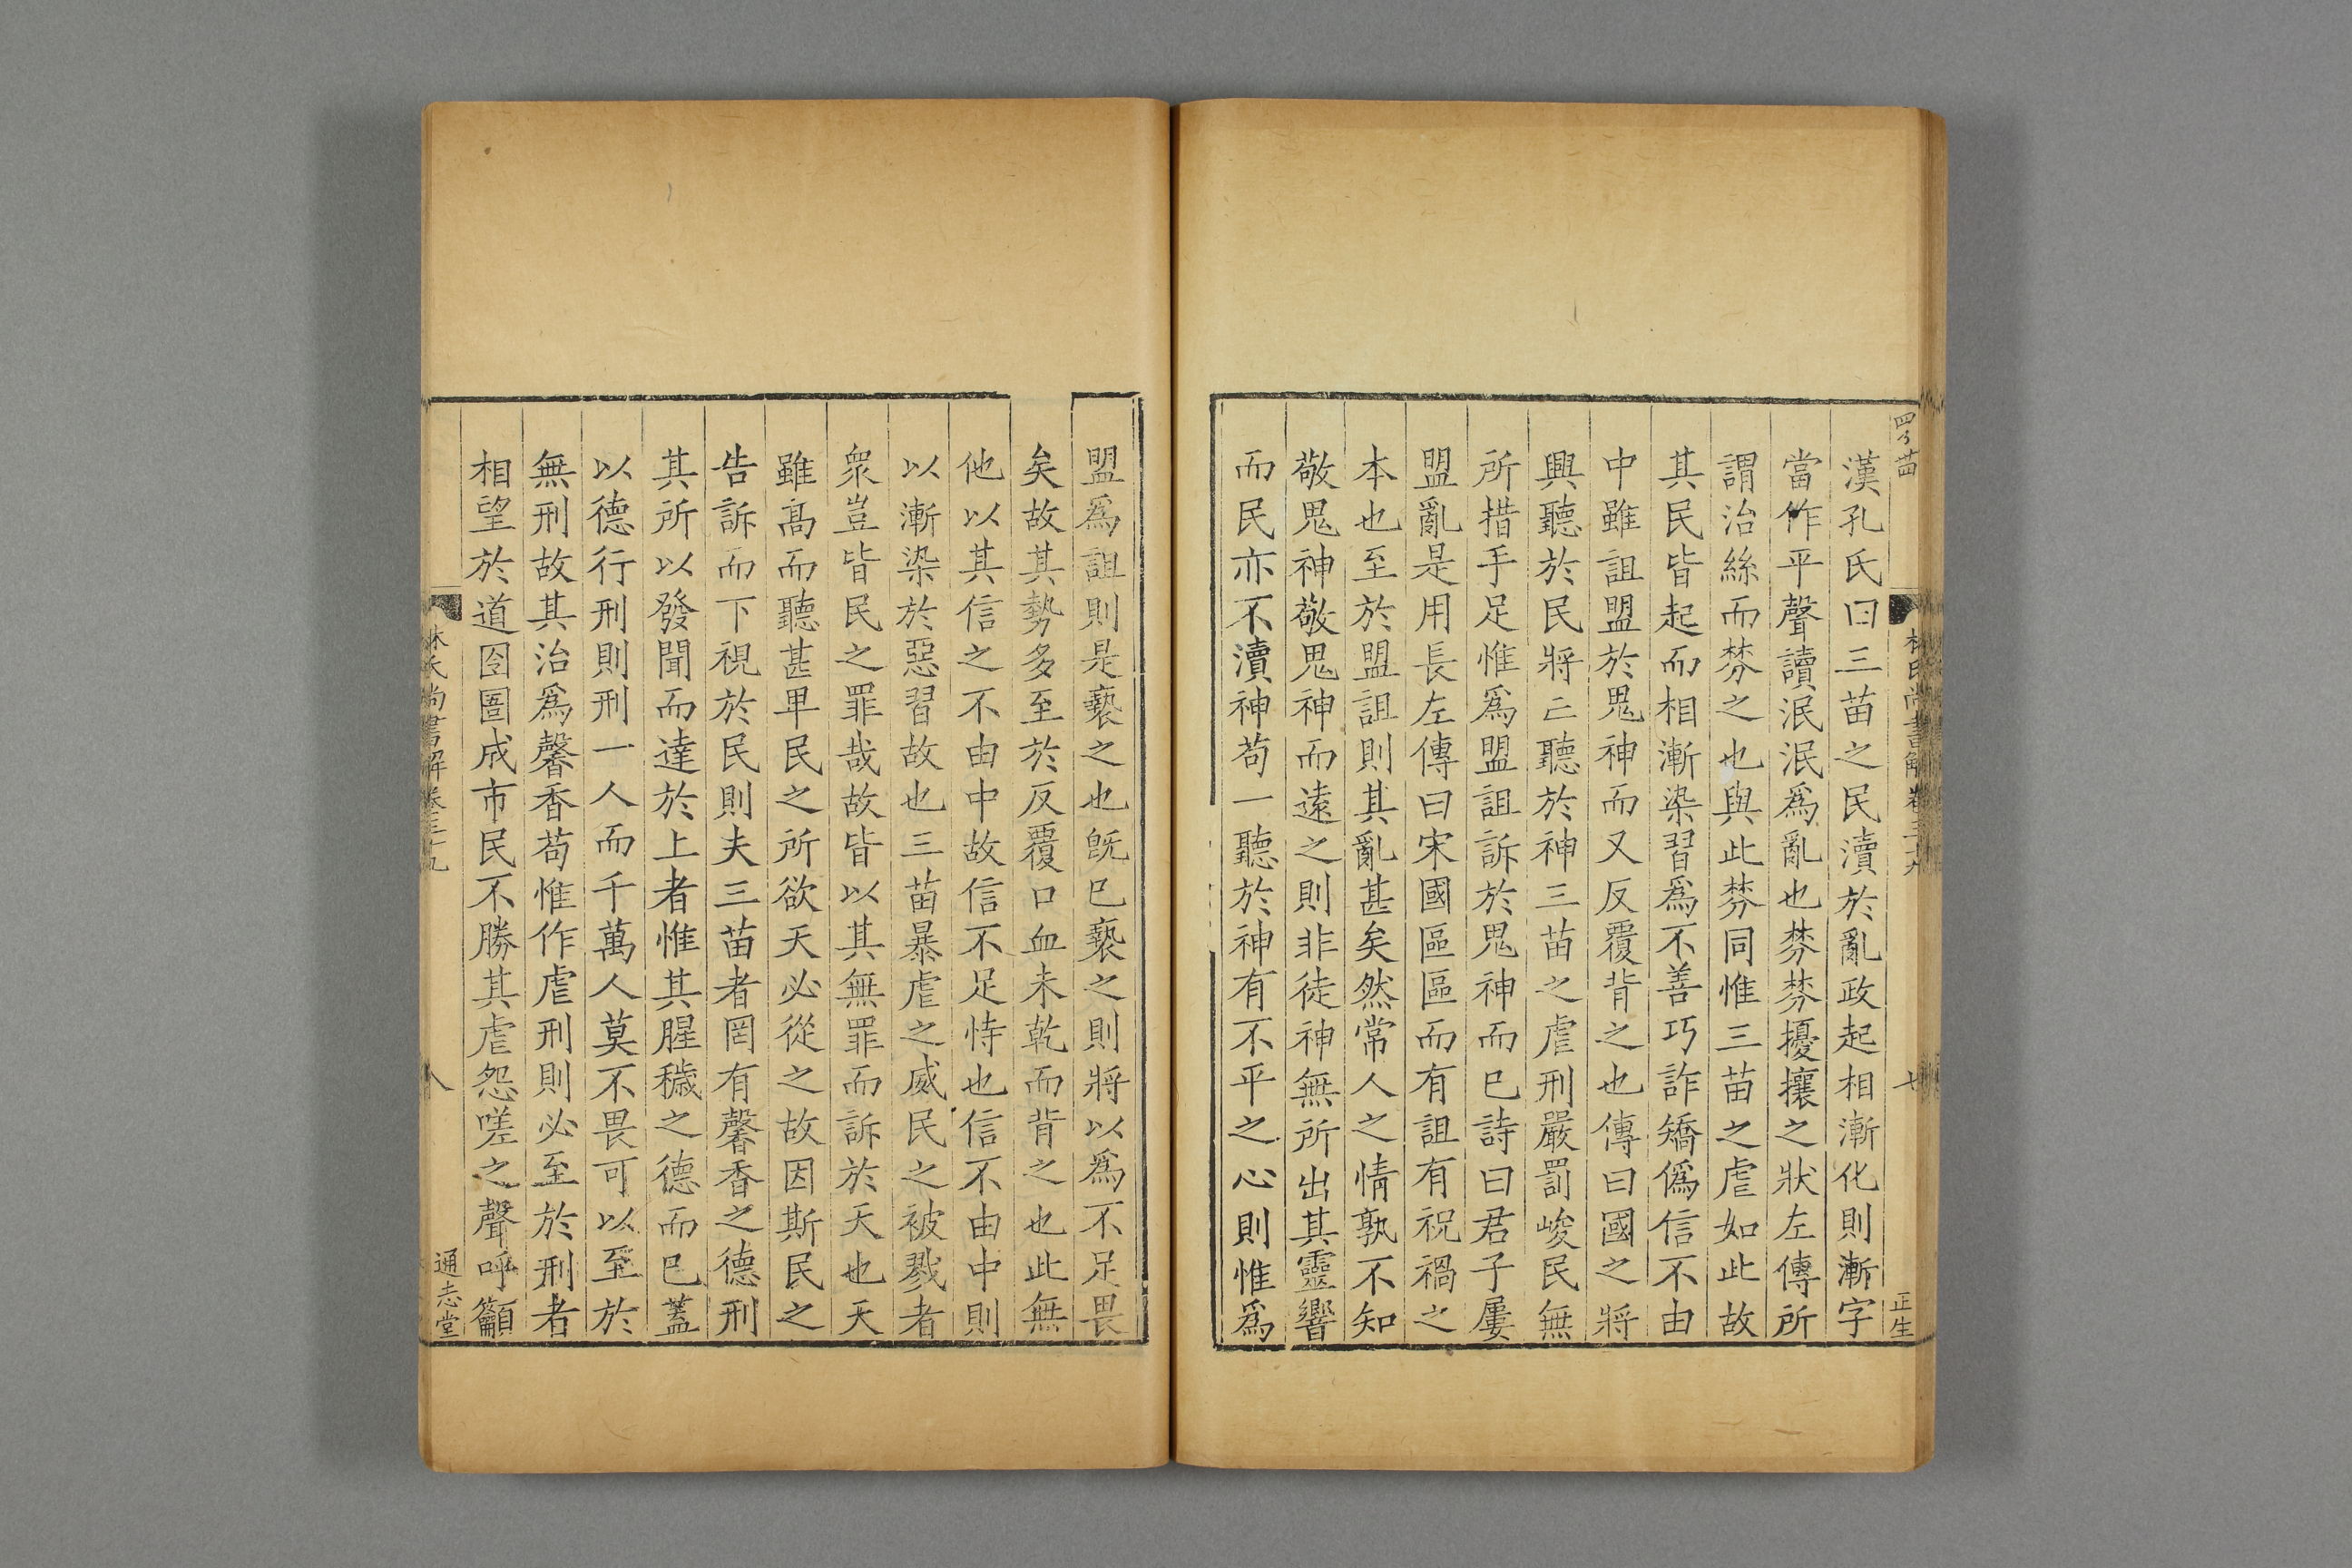 漢孔氏曰三苗之民瀆於亂政起相漸化則漸字
當作平聲讀泯泯爲亂也棼棼擾攘之狀左傳所
謂治絲而棼之也與此棼同惟三苗之虐如此故
其民皆起而相漸染習爲不善巧詐矯僞信不由
中雖詛盟於鬼神而又反覆背之也傳曰國之將
興聽於民將亡聽於神三苗之虐刑嚴罰峻民無
所措手足惟爲盟詛訴於鬼神而已詩曰君子屢
盟亂是用長左傳曰宋國區區而有詛有祝禍之
本也至於盟詛則其亂甚矣然常人之情孰不知
敬鬼神敬鬼神而遠之則非徒神無所出其靈響
而民亦不瀆神苟一聽於神有不平之心則惟爲
林氏尚書解卷三十九
七
正生
盟爲詛則是褻之也旣已褻之則將以爲不足畏
矣故其勢多至於反覆口血未乾而背之也此無
他以其信之不由中故信不足恃也信不由中則
以漸染於惡習故也三苗暴虐之威民之被戮者
衆豈皆民之罪哉故皆以其無罪而訴於天也天
雖高而聽甚卑民之所欲天必從之故因斯民之
告訴而下視於民則夫三苗者罔有馨香之德刑
其所以發聞而達於上者惟其腥穢之德而已蓋
以德行刑則刑一人而千萬人莫不畏可以至於
無刑故其治爲馨香苟惟作虐刑則必至於刑者
相望於道囹圄成市民不勝其虐怨嗟之聲呼籲
林氏尚書解卷三十九
八
通志堂